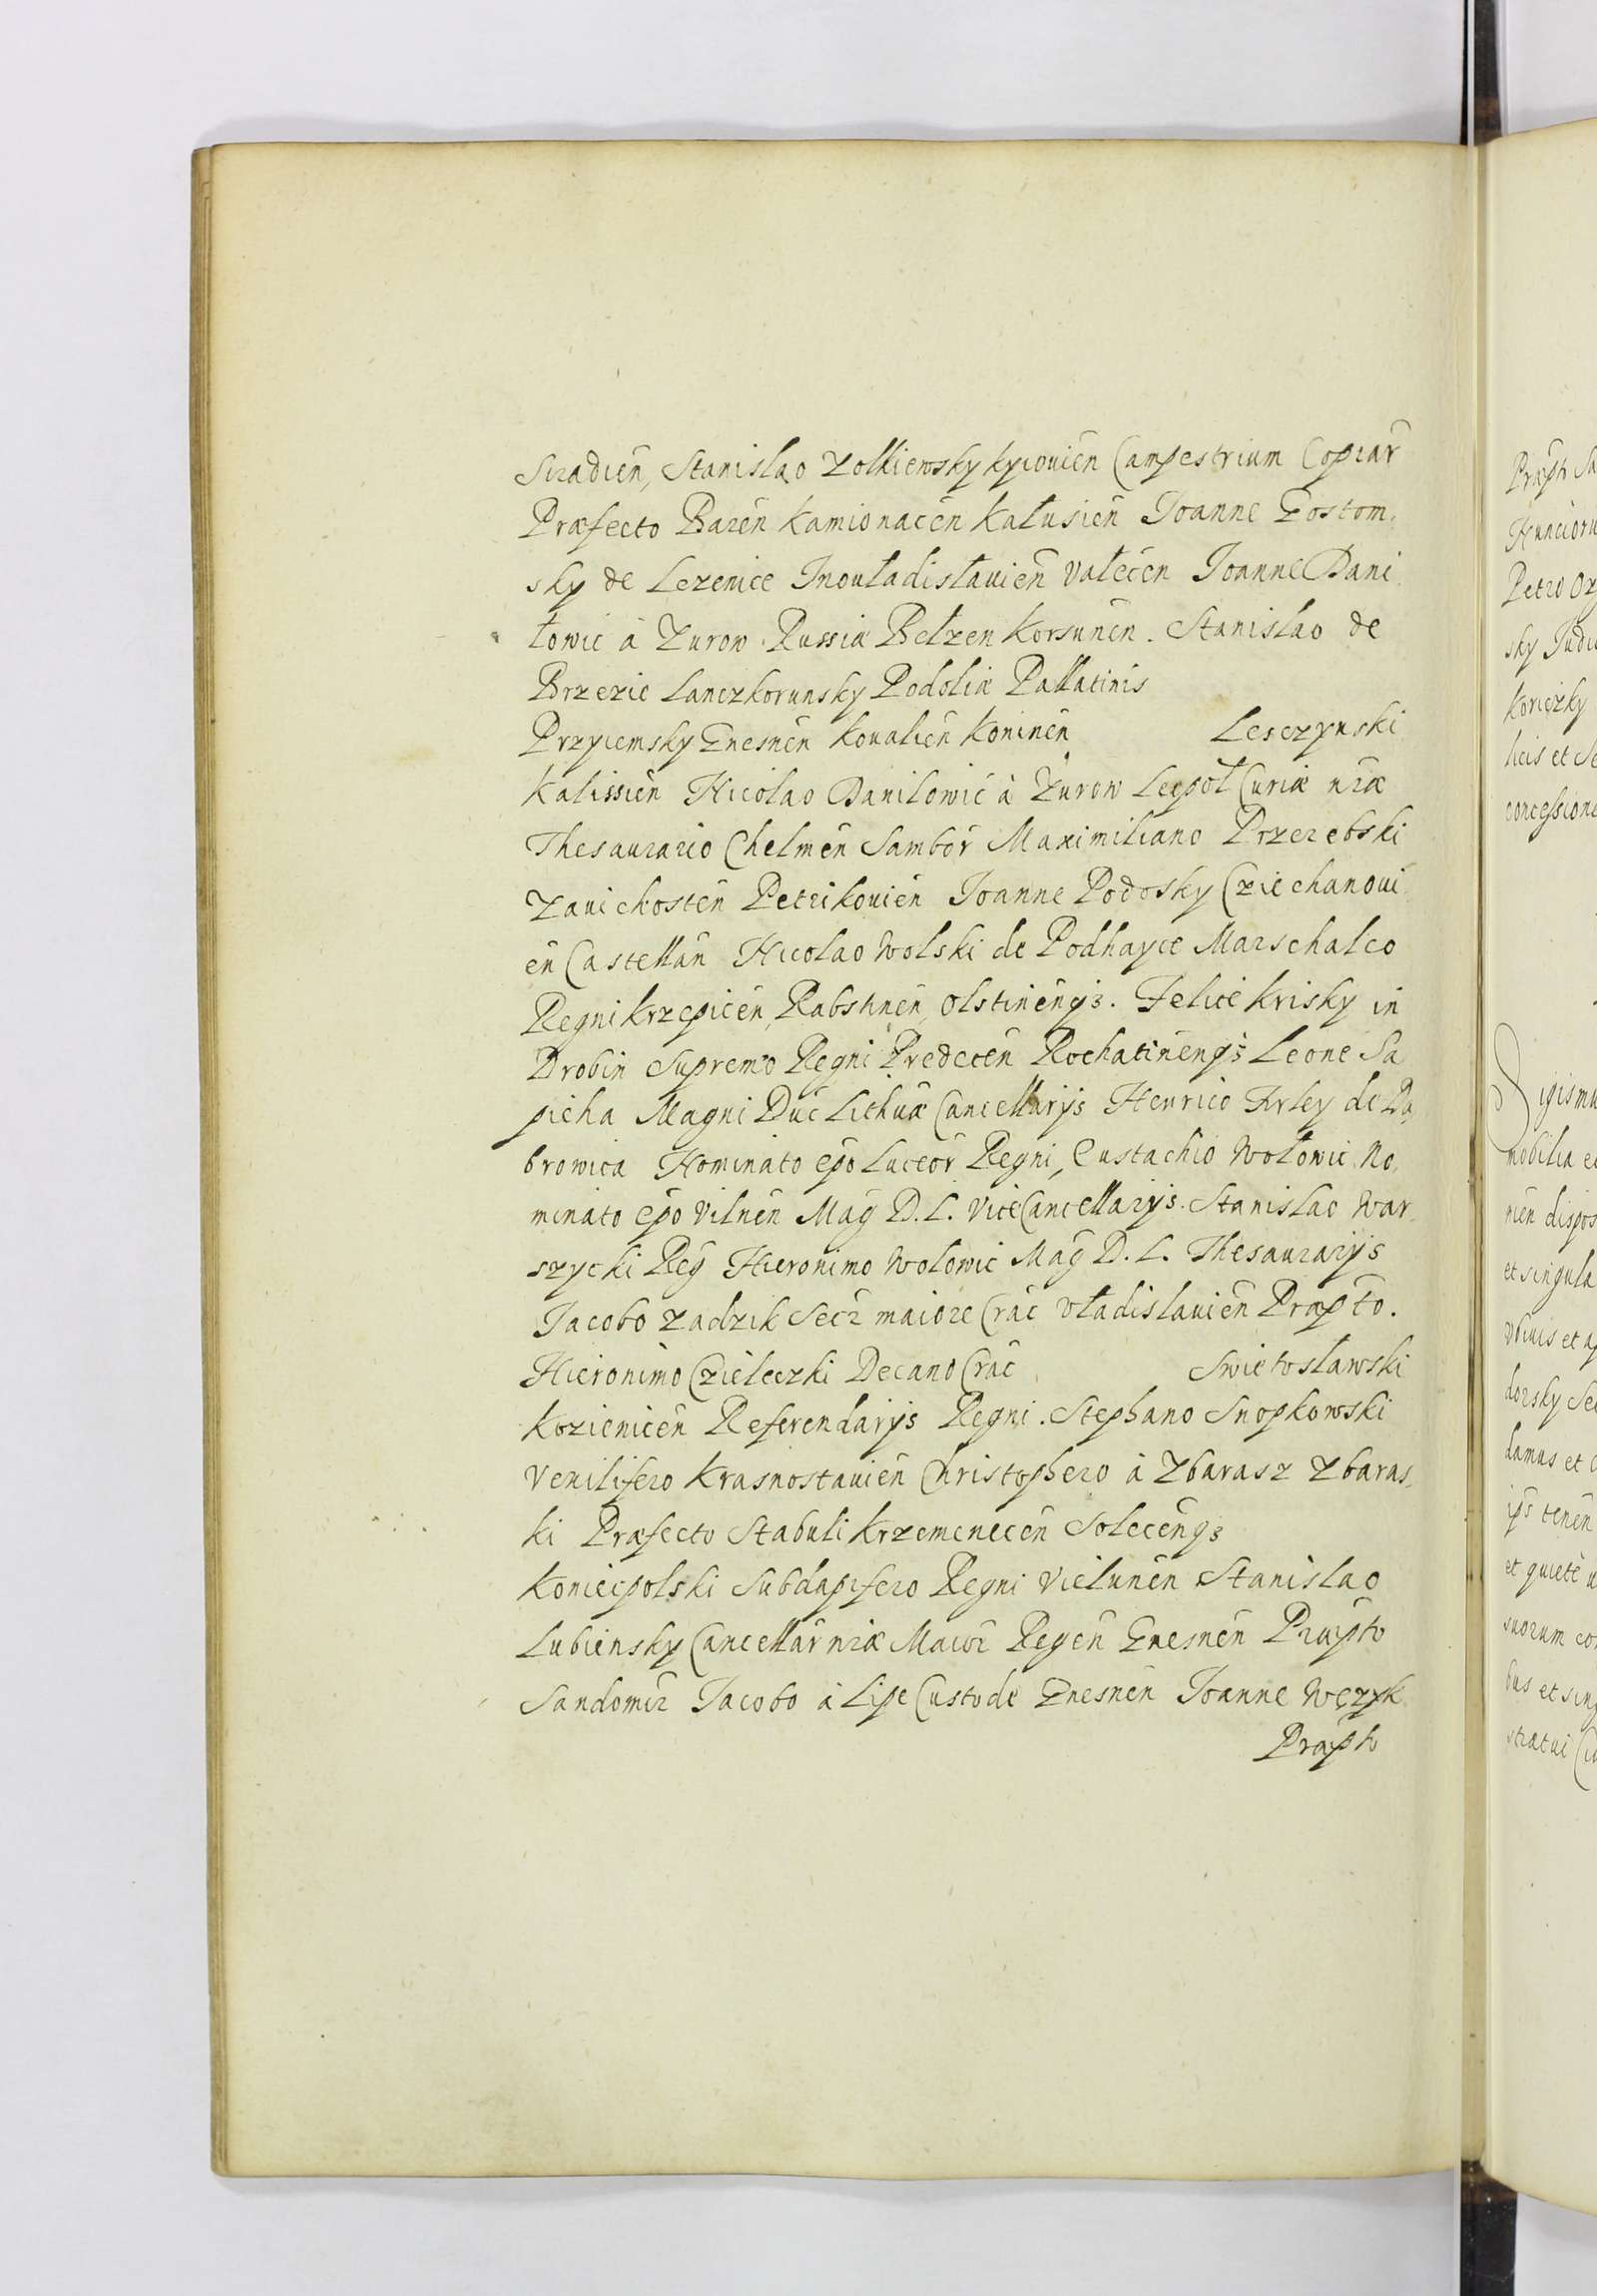 Siradien̄, Stanislao Zolkiewsky kyiouien̄ Campestrium Copiar̄
Præfecto Baren̄ Kamionacen̄ Kałusien̄ Joanne Gostom,
sky de Lezenice Jnouładisłauien̄ Vałecen̄ Joanne Dani
łowic à Zurow Russiæ Bełzen Korsunen̄. Stanislao de
Brzezie Lanczkorunsky Podoliæ Pallatinis
Przyiemsky Gnesnen̄ Koualien̄ Koninen̄ Lesczynski
Kalissien̄ Nicolao Danilowic à Zurow Leopoł Curiæ nr̄æ
Thesaurario Chelmen̄ Sambor̄ Maximiliano Przerebski
Zauichosten̄ Petrikouien̄ Joanne Podosky Cziechanoui
en̄ Castellan̄ Nicolao Wolski de Podhayce Marschalco
Regni Krzepicen̄, Rabstinen̄, Olstinenq3. Felice Krisky in
Drobin Supremo Regni Predecen̄ Rochatinenq3 Leone Sa
pieha Magni Duc̄ Lithuæ Cancellarijs Henrico Firley de Da,
browica Nominato Ep̄o Luceor̄ Regni, Eustachio Wołowic No,
minato Ep̄o Vilnen̄ Maḡ D. L. ViceCancellarijs. Stanislao War,
szycki Reḡ Hieronimo Wołowic Maḡ D. L. Thesaurarijs
Jacobo Zadzik Secr̄ maiore Crac̄ Vładislauien̄ Præp̄to.
Hieronimo Czieleczki Decano Crac̄ Swietosławski
Kozienicen̄ Referendarijs Regni. Stephano Snopkowski
Venilifero Krasnostauien̄ Christophero à Zbarasz Zbaras,
ki Præfecto Stabuli Krzemenecen̄ Solecenq3
Koniecpolski Subdapifero Regni Vielunen̄ Stanislao
Lubiensky Cancellar̄ nr̄æ Maior̄ Regen̄ Gnesnen̄ Præp̄to
Sandomir̄ Jacobo à Lipe Custode Gnesnen̄ Joanne Węzyk
Præp̄to